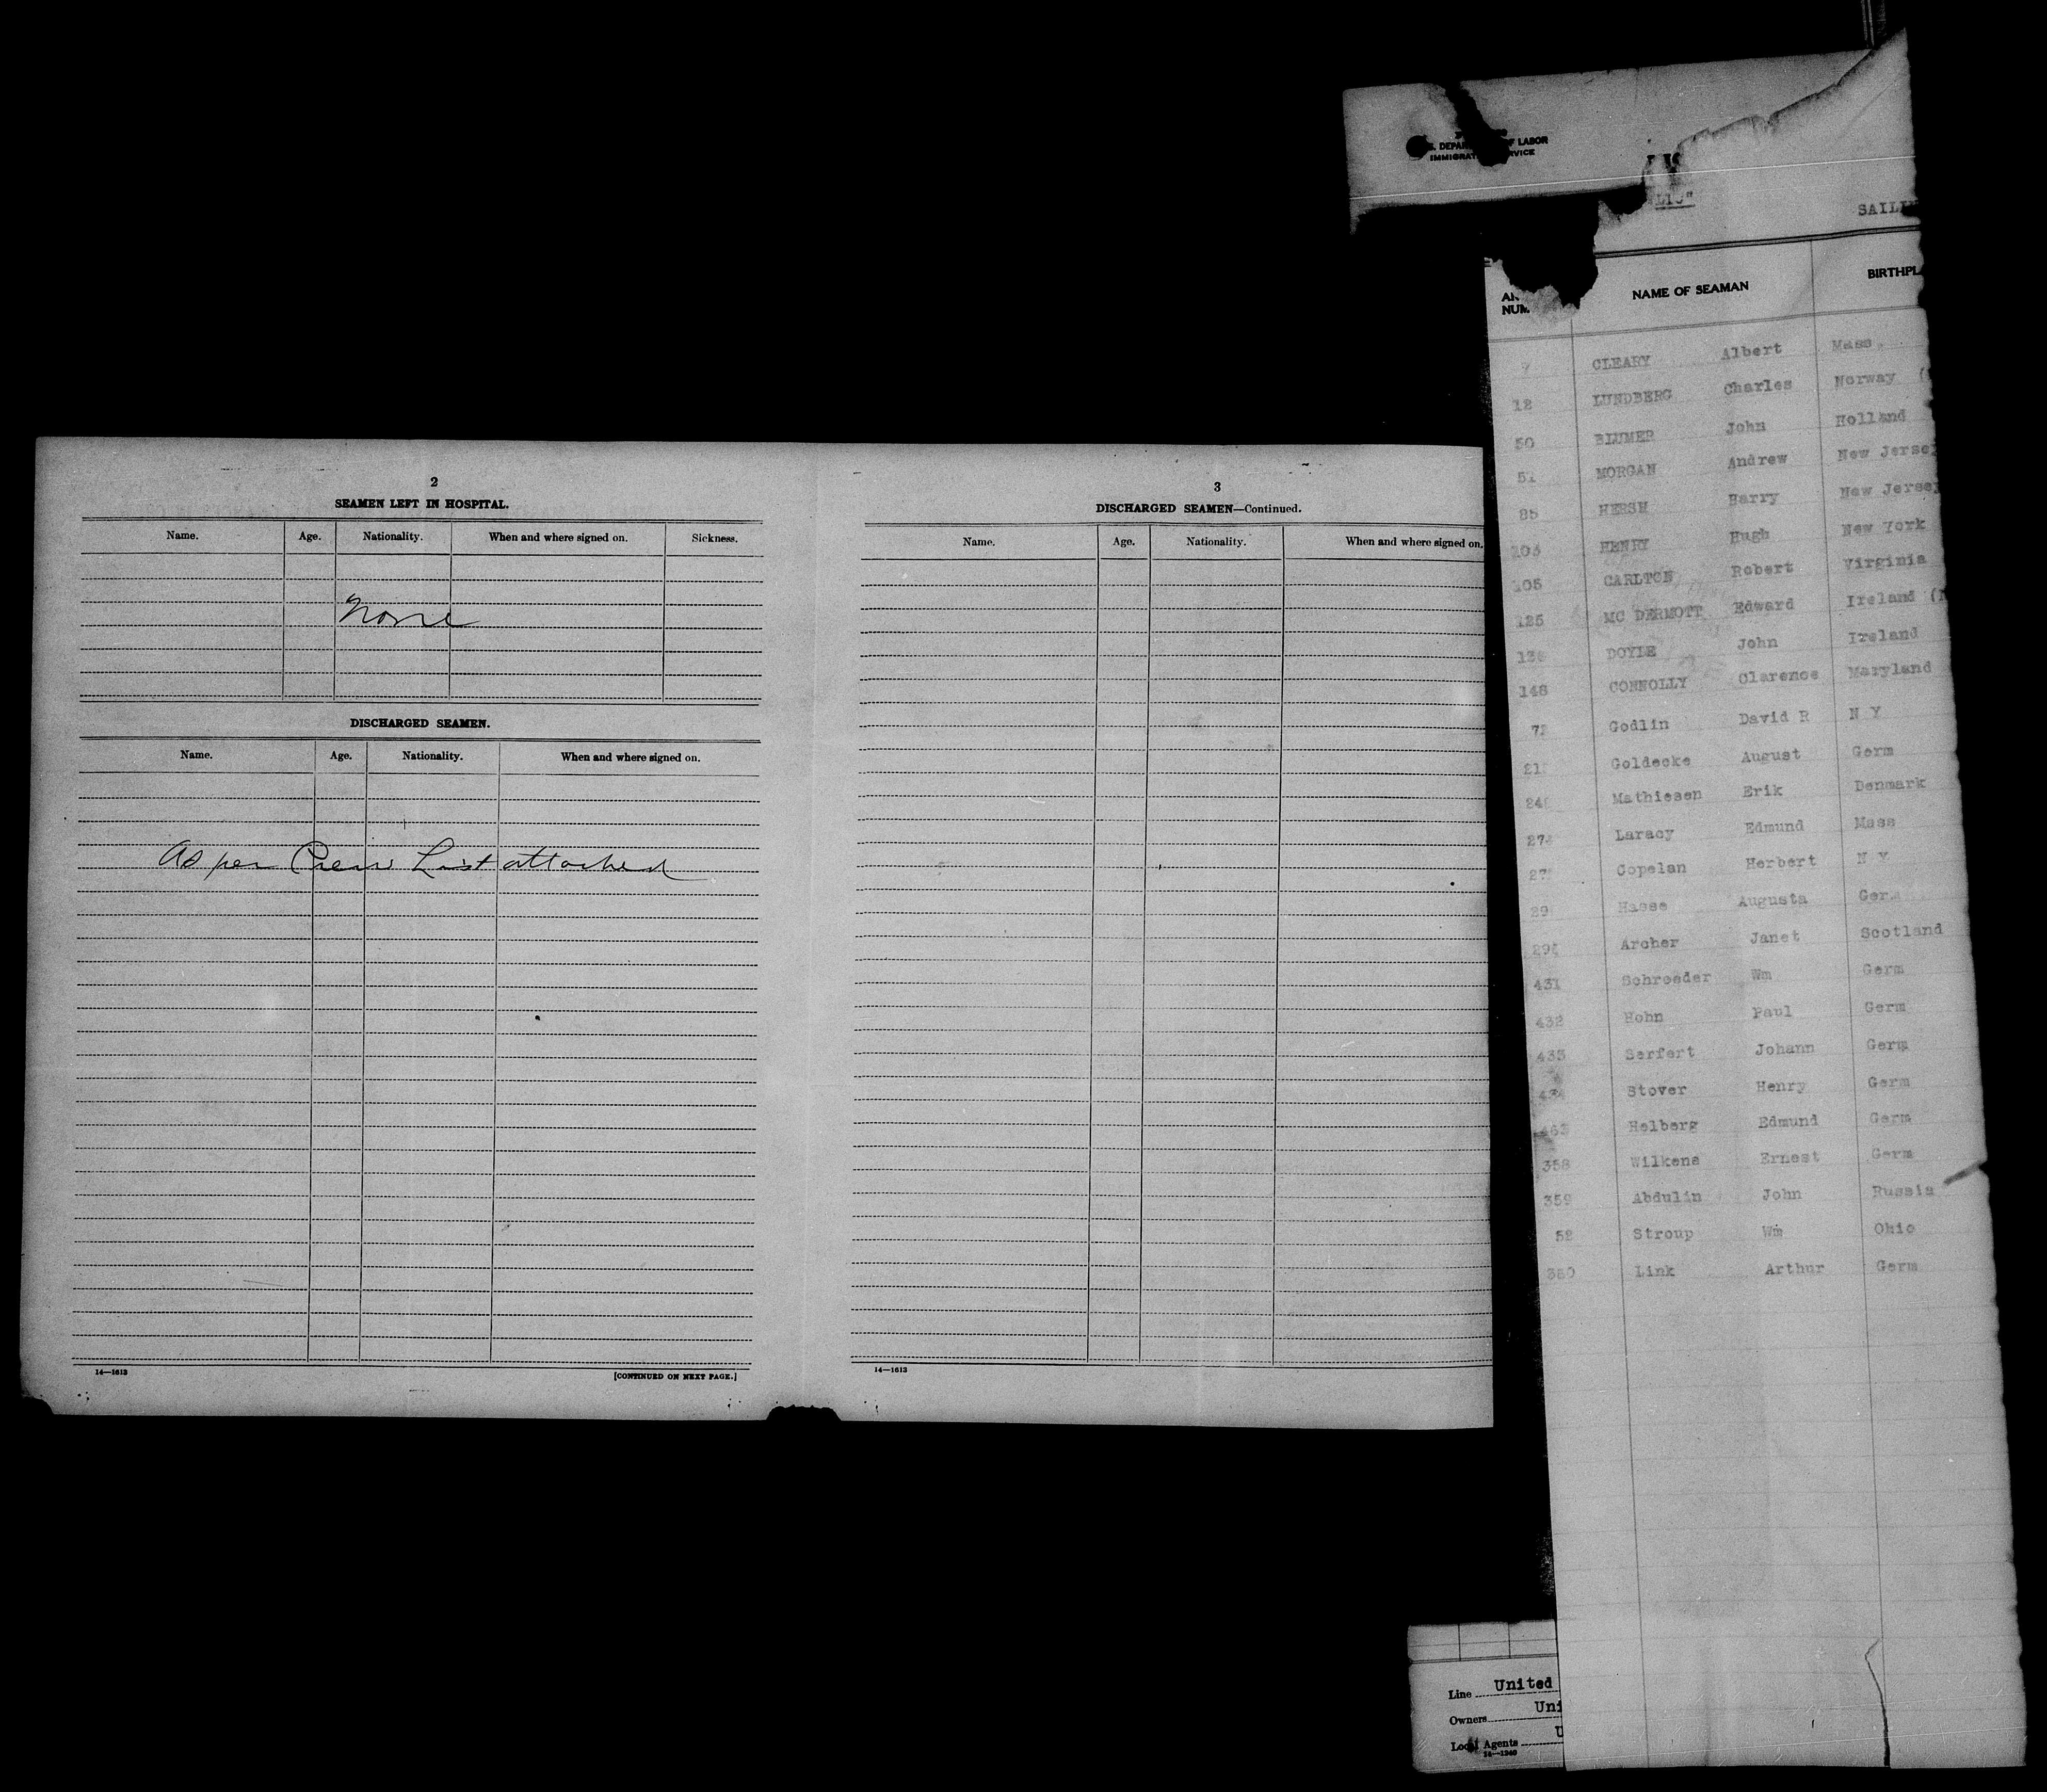 2
SEAMEN LEFT IN HOSPITAL.
Name. Age. Nationality. When and where signed on. Sickness.
None
DISCHARGED SEAMEN.
Name. Age. Nationality. When and where signed on.
As per Crew List attached
14—1613 [CONTINUED ON NEXT PAGE.]
3
DISCHARGED SEAMEN—Continued.
Name. Age. Nationality. When and where signed on.
14—1613
LABOR
IMMIGRAT
LIC"
SAILI
NUM
NAME OF SEAMAN
BIRTHPLA
7 CLEARY Albert Mass.
12 LUNDBERG Charles Norway (
50 BLUMER John Holland
51 MORGAN Andrew New Jersey
85 HERSH Harry New Jersey
103 HENRY Hugh New York
105 CARLTON Robert Virginia
125 MC DERMOTT Edward Ireland (
DOYLE John Ireland
148 CONNOLLY Clarence Maryland
Godlin David R N Y
Goldecke August Germ
Mathiesen Erik Denmark
Laracy Edmund Mass
Copelan Herbert N Y
Hasse Augusta Germ
Archer Janet Scotland
431 Schroeder Wm Germ
432 Hohn Paul Germ
433 Serfert Johann Germ
Stover Henry Germ
463 Helberg Edmund Germ
358 Wilkens Ernest Germ
359 Abdulin John Russia
52 Stroup Wm Ohio
Link Arthur Germ
Line United
Owners Uni
Local Agents U
14—1240